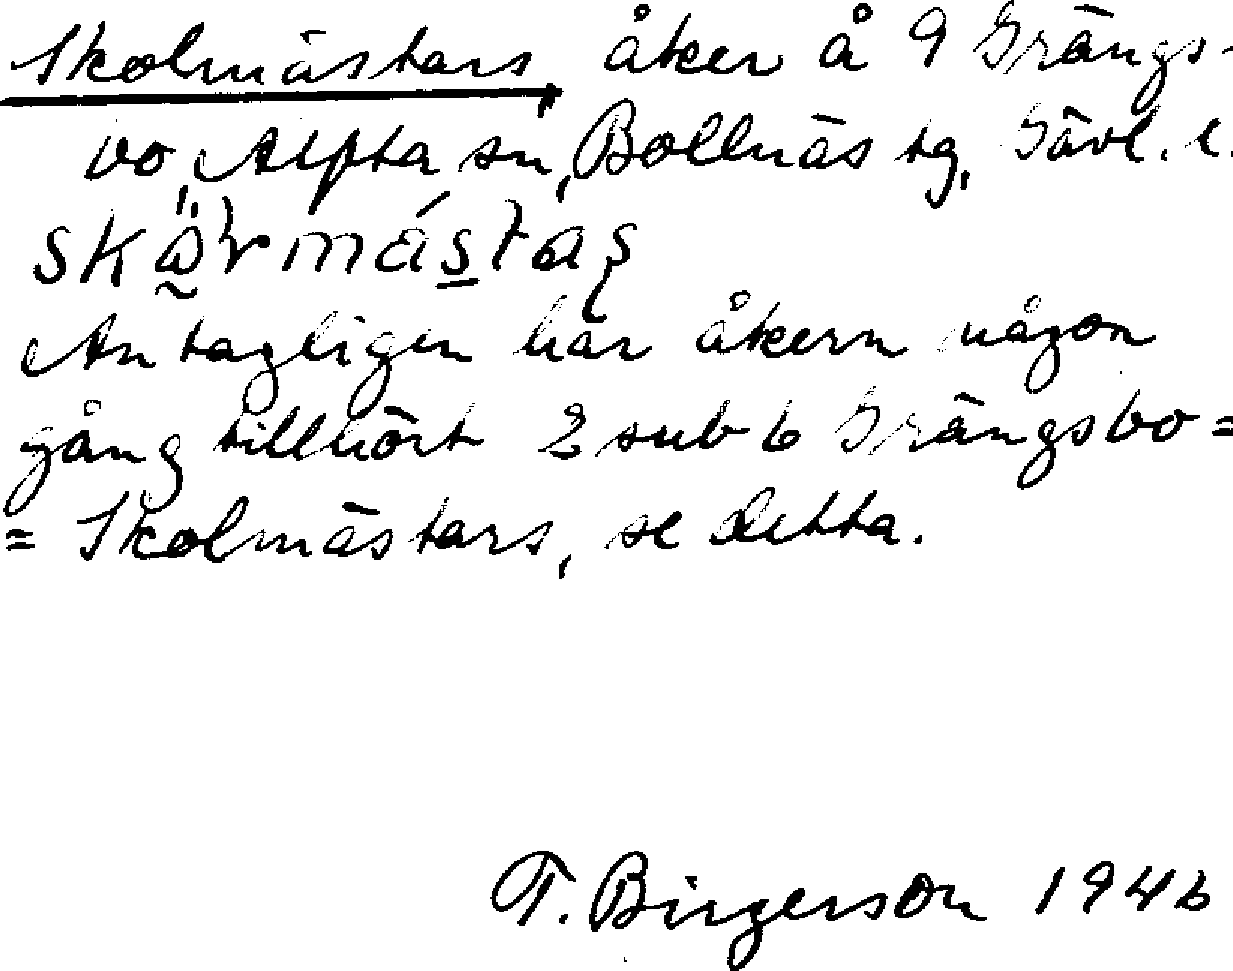 Skolmästars, åker å 9 Grängs-
bo, Alfta sn, Bollnäs tg, Gävl. l.
Antagligen har åkern någon
gång tillhört 2 sub 6 Grängsbo =
= Skolmästars, se detta.
T. Birgerson 1946